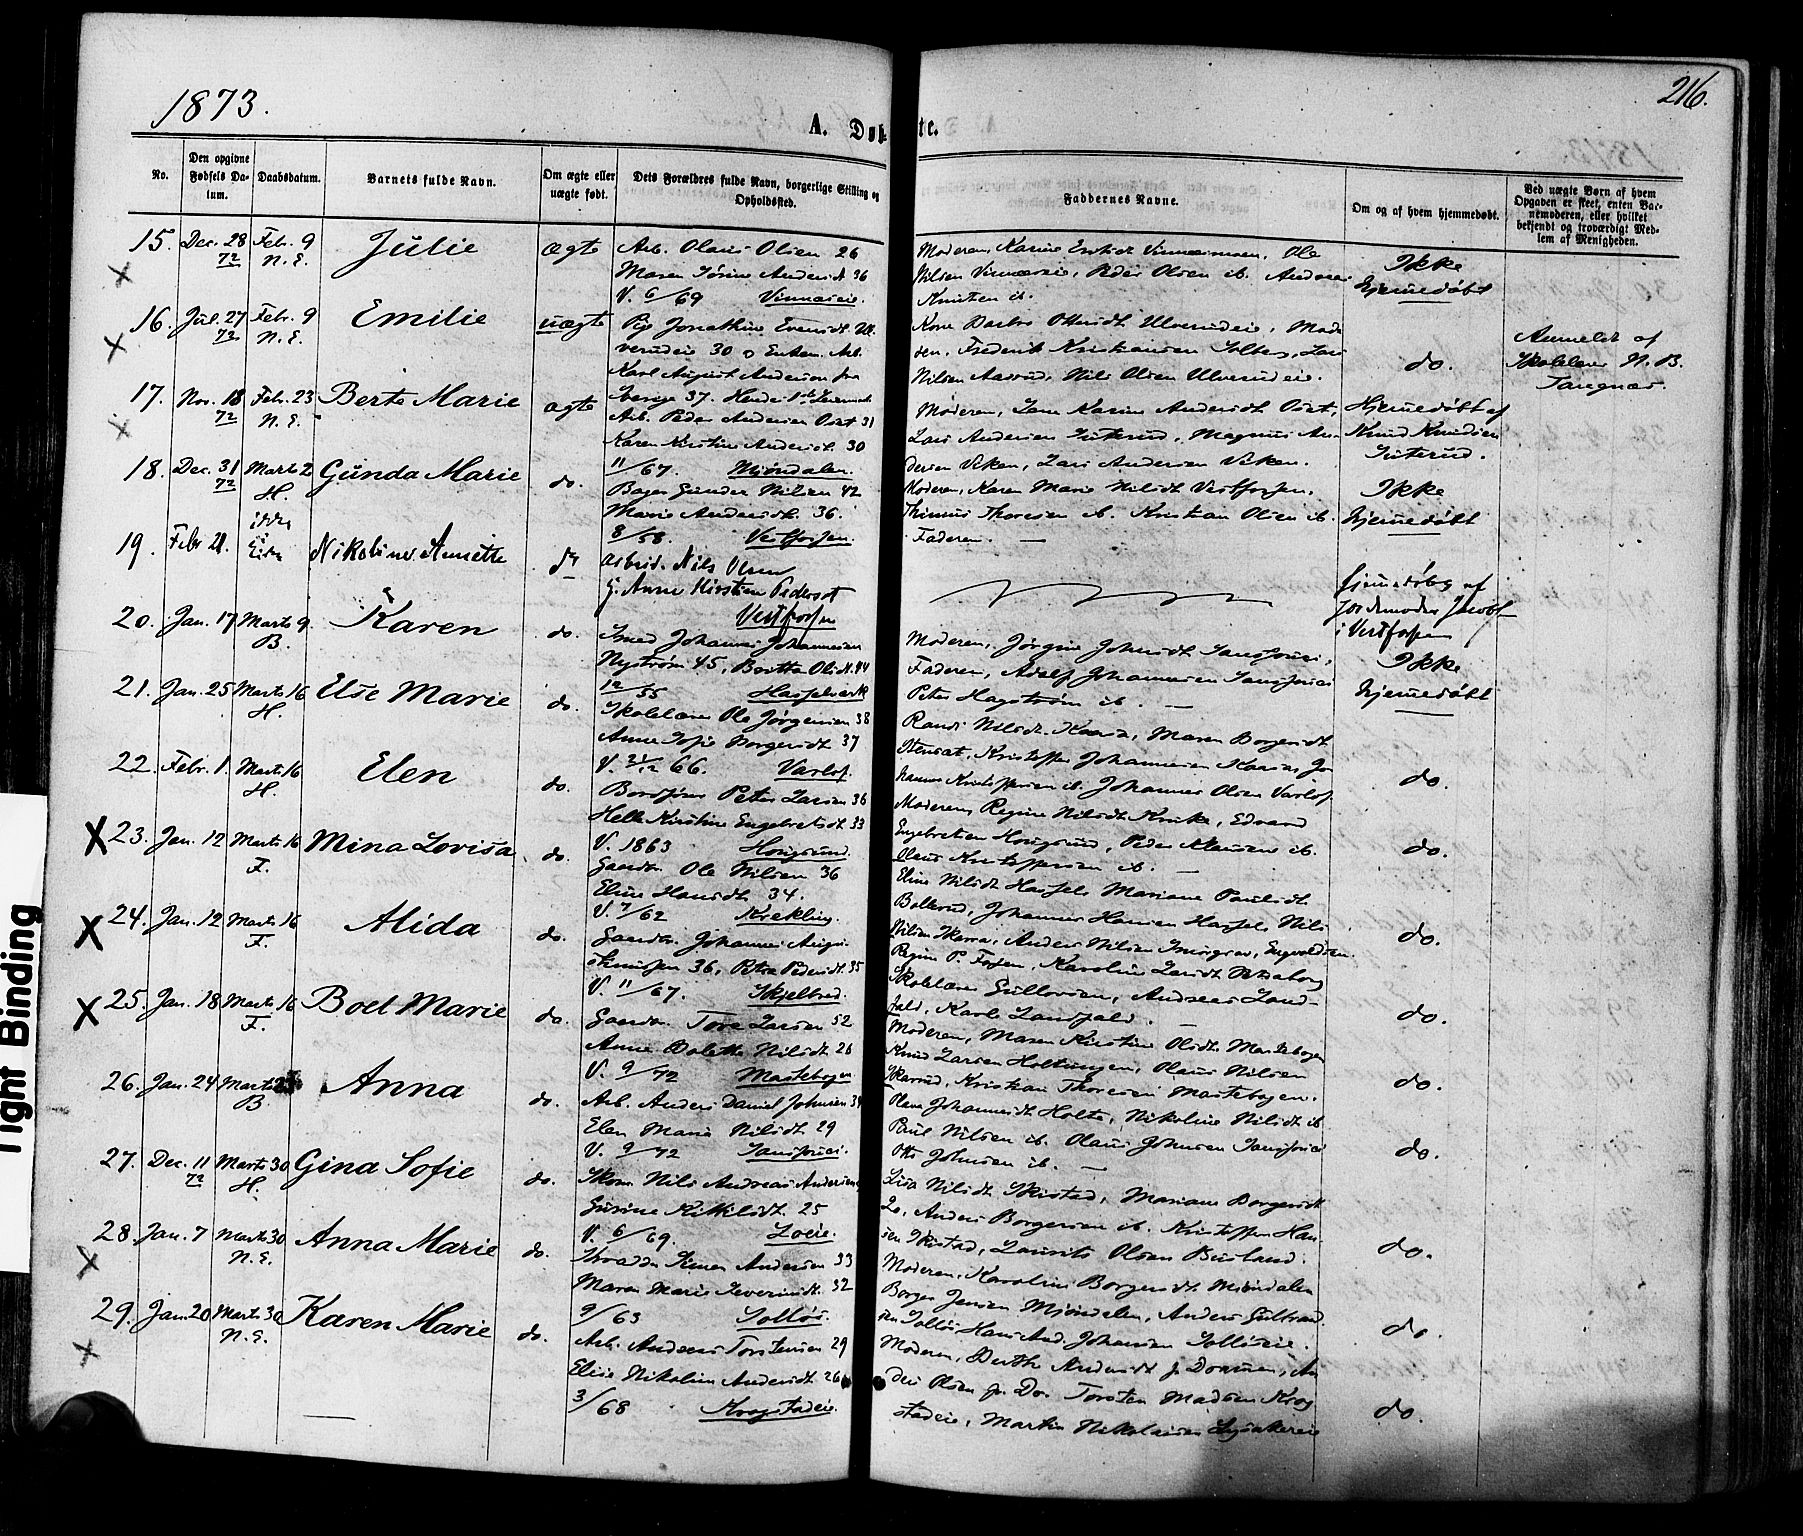 1873.
216.
A. Døbte.
No.
Den opgivne Fødsels Datum.
Daabsdatum.
Barnets fulde Navn.
Om ægte eller uægte født.
Dets Forældres fulde Navn, borgerlige Stilling og Opholdssted.
Faddernes Navne.
Om og af hvem hjemmedøbt.
Ved uægte Børn af hvem Opgaven er skeet, enten Barnemoderen, eller hvilket bekjendt og troværdigt Medlem af Menigheden.
15. Dec. 28 72 Febr. 9 N.E. Julie ægte
Arb. Olaus Olsen 26
Maren Sørine Andersd. 36
V. 6/69 Vinnæseie.
Ole
Nilsen Vinnæseie, Peder Olsen ib. Andreas
Knutsen ib.
Ikke
hjemmedøbt
16. Jul. 27 72 Febr. 9 N.E. Emilie uægte
Pige Jonathine Evensdt. Ul
verudeie 30 o Enkem. Arb.
Karl August Anderson fra
Sverige 37. Hendes 1ste
Kone Barbro Ottersdt Ulverudeie,
Frederik Kristiansen Solberg, Lars
Nilsen Aasrud, Nils Olsen Ulverudeie.
do.
Anmeldt af
Skolelærer N. B.
Tangnæs.
17. Nov. 18 72 Febr. 23 N.E. Berte Marie ægte
Arb. Peder Andersen 31
Karen Kirstine Andersdt. 30
11/67. Mjøndalen.
Moderen, Karine Andersdt
Lars Andersen Guterud, Magnus An-
dersen Viken, Lars Andersen Viken.
Hjemmedøbt af
Knud Knudsen
Guterud.
18. Dec. 31 72 Marts 2 H. Gunda Marie do.
Gunder Nilsen 42
Marie Andersdt. 36.
8/58. Vestfossen.
Moderen, Karen Marie Nilsdt Vestfossen,
Thoresen ib. Kristian Olsen ib.
Faderen. —
Ikke
hjemmedøbt
19. Febr 21. Nikoline Annette do
arbeid. Nils Olsen
g. Anne Kirstine Pedersdt
Vestfossen
hjemmedøbt af
Jordemoder Jacobs
i Vestfossen
20. Jan. 17 Marts 9 B. Karen do.
Smed Johannes Johannesen
Nyström 45, Britta Olsdt. 44
12/55 Hasselværk
Moderen, Jørgine Johnsdt
Faderen, Adolf Johannesen
Peter Hagström ib. —
Ikke
hjemmedøbt
21. Jan. 25 Marts 16 H. Else Marie do.
Skolelærer Ole Jørgensen 38
Anne Sofie Borgersdt 37
V. 21/12 66. Varlo.
Randi Nilsdt. Kaasa, Maren Borgersdt
Stensæt, Kristoffer Johannesen Kaasa, Jo
hannes Kristoffersen ib. Johannes Olsen Varlo
do.
22. Febr. 1. Marts 16 H. Elen do.
Peter Larsen 36
Helle Kirstine Engebretsdt 33
V. 1863 Hougsund.
Moderen, Regine Nilsdt Krike, Edvard
Engebretsen Hougsund, Peder Klausen ib.
Olaus Kristoffersen ib. —
do.
23. Jan. 12 Marts 16 F. Mina Lovisa do.
Gaardbr. Ole Nilsen 36
Eline Hansdt. 34.
V. 7/62 Krekling.
Eline Nilsdt Hassel, Mariane Paulsdt
Bollerud, Johannes Hansen Hassel, Nils
Nilsen Skarra, Anders Nilsen
do.
24. Jan. 12 Marts 16 F. Alida do.
Gaardbr. Johannes
36, Petra Pedersdt. 35
V. 11/67. Skjelbred.
Regine P. Fossen, Karoline Larsdt
Skolelærer Gullovsen, Andreas Land-
fald, Karl Landfald. —
do.
25. Jan. 18 Marts 16 F. Boel Marie do.
Gaardbr. Tore Larsen 52
Anne Dolette Nilsdt. 26
V. 9/72 Mastebogen
Moderen, Maren Kirstine Olsdt Mastebogen
Knud Larsen Holtungen, Olaus Nilsen
Skarrud, Kristian Thoresen Mastebogen.
do.
26. Jan. 24 Marts 23 B. Anna do.
Arb. Anders Daniel Johnsen 34
Elen Marie Nilsdt 29
V. 9/72
Olava Johannesdt Holte, Nikoline Nilsdt ib
Paul Nilsen ib. Olaus Johnsen
Otto Johnsen ib. —
do.
27. Dec. 11 72 Marts 30 H. Gina Sofie do.
Skom. Nils Andreas Andersen
Gusine Kittilsdt. 25
V. 6/69. Loeie.
Lisa Nilsdt Skistad, Mariane Borgersdt
Lo, Anders Borgersen ib. Kristoffer Han
sen Skistad, Laurits Olsen Burland.
do.
28. Jan. 7 Marts 30 N.E. Anna Marie do.
Andersen 33
Maren Marie Severinsdt. 32
9/63 Solløs.
Moderen, Karoline Borgersdt Mjøndalen
Borger Jensen Mjøndalen, Anders Gulbrand
sen Solløs, Hans And. Johansen Solløseie.
do.
29. Jan. 20 Marts 30 N.E. Karen Marie do.
Arb. Anders Torstensen 29
Elise Nikoline Andersdt. 26
3/68 Krogstadeie.
Moderen, Berthe Andersdt fr Drammen, An
ders Olsen fr. Do. Torsten Madsen Krog
stadeie, Martin Nikolaisen
do.
Tight Binding